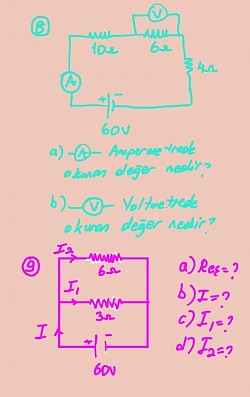 8
V
10Ω
6Ω
4Ω
A
+ -
60V
a) A Ampermetrede
okunan değer nedir?
b) V Voltmetrede
okunan değer nedir?
9
I2
6Ω
I1
3Ω
I
+ -
60V
a) Reş=?
b) I=?
c) I1=?
d) I2=?